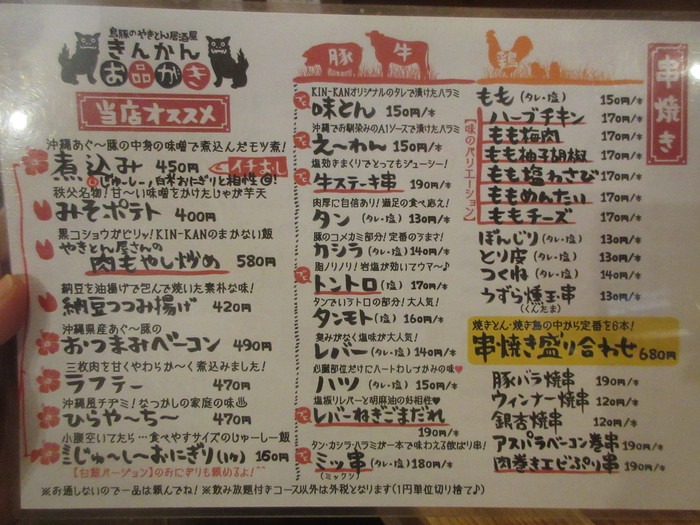 鳥豚のやきとん居酒屋
きんかん
お品がき
当店オススメ
沖縄あぐ〜豚の中身の味噌で煮込んだモツ煮!
煮込み 450円 イチおし
じゅーしー/白米おにぎりと相性◎!
秩父名物!甘〜い味噌をかけたじゃが芋天
みそポテト 400円
黒コショウがピリッ!KIN-KANのまかない飯
やきとん屋さんの
肉もやし炒め 580円
納豆を油揚げで包んで焼いた素朴な味!
納豆つつみ揚げ 420円
沖縄県産あぐ〜豚の
おつまみベーコン 490円
三枚肉を甘くやわらか〜く煮込みました!
ラフテー 470円
沖縄風チヂミ!なつかしの家庭の味
ひらや〜ち〜 470円
小腹空いてたら…食べやすサイズのじゅーしー飯
ミニじゅ〜し〜おにぎり(1ヶ) 160円
【白飯バージョン】のおにぎりも頼めるよ!^^
豚
牛
KIN-KANオリジナルのタレで漬けたハラミ
味とん 150円/本
沖縄でお馴染みのA1ソースで漬けたハラミ
え〜わん 150円/本
塩効きまくりでとってもジューシー!
牛ステーキ串 190円/本
肉厚に自信あり!満足の食べ応え!
タン (タレ・塩) 130円/本
豚のコメカミ部分!定番のうまさ!
カシラ (タレ・塩) 140円/本
脂ノリノリ!岩塩が効いてウマ〜♪
トントロ (塩) 170円/本
タンでいうトロの部分!大人気!
タンモト (塩) 160円/本
臭みがなく塩味が大人気!
レバー (タレ・塩) 140円/本
心臓部位だけにハートわしづかみの味♥
ハツ (タレ・塩) 150円/本
塩振りレバーと胡麻油の好相性♥
レバーねぎごまだれ
190円/本
タン・カシラ・ハラミが一本で味わえる欲ばり串!
ミッ串 (タレ・塩) 180円/本
(ミックツ)
鶏
串焼き
もも (タレ・塩) 150円/本
【味のバリエーション】
ハーブチキン 170円/本
もも梅肉 170円/本
もも柚子胡椒 170円/本
もも塩わさび 170円/本
ももめんたい 170円/本
ももチーズ 170円/本
ぼんじり (タレ・塩) 130円/本
とり皮 (タレ・塩) 130円/本
つくね (タレ・塩) 140円/本
うずら燻玉串 130円/本
(くんたま)
焼きとん・焼き鳥の中から定番を6本!
串焼き盛り合わせ 680円
豚バラ焼串 190円/本
ウィンナー焼串 120円/本
銀杏焼串 190円/本
アスパラベーコン巻串 190円/本
肉巻きエビぷり串 190円/本
※お通しないので一品は頼んでね! ※飲み放題付きコース以外は外税となります(1円単位切り捨て♪)